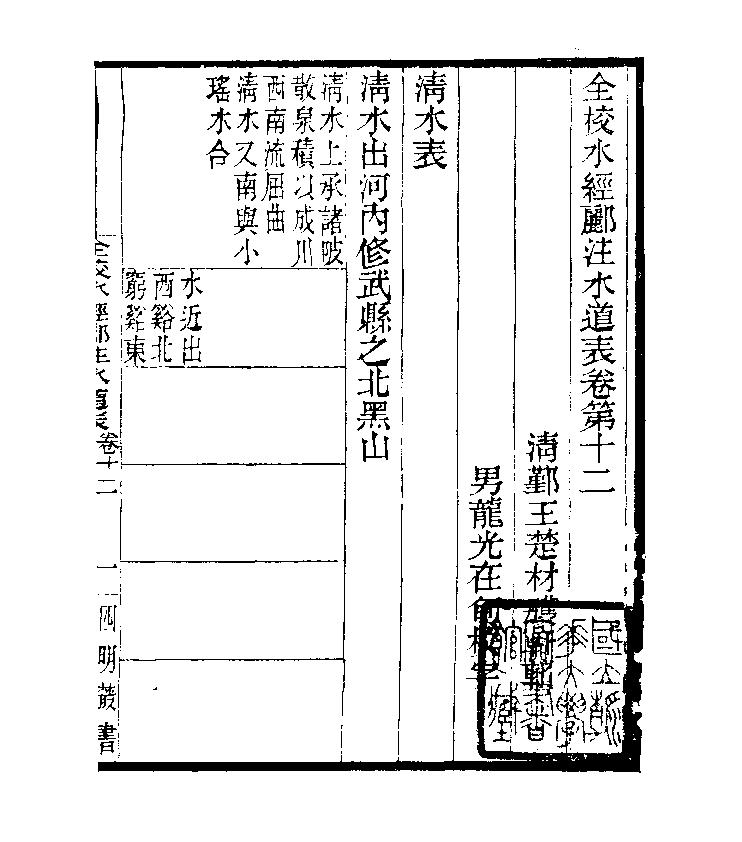 全校水經酈注水道表卷第十二
清鄞王楚材
男龍光在
清水表
清水出河內修武縣之北黑山
清水上承諸陂
散泉積以成川
西南流屈曲
清水又南與小
瑤水合
水近出
西谿北
窮谿東
全校水經酈注水道表卷十二
一
四明叢書